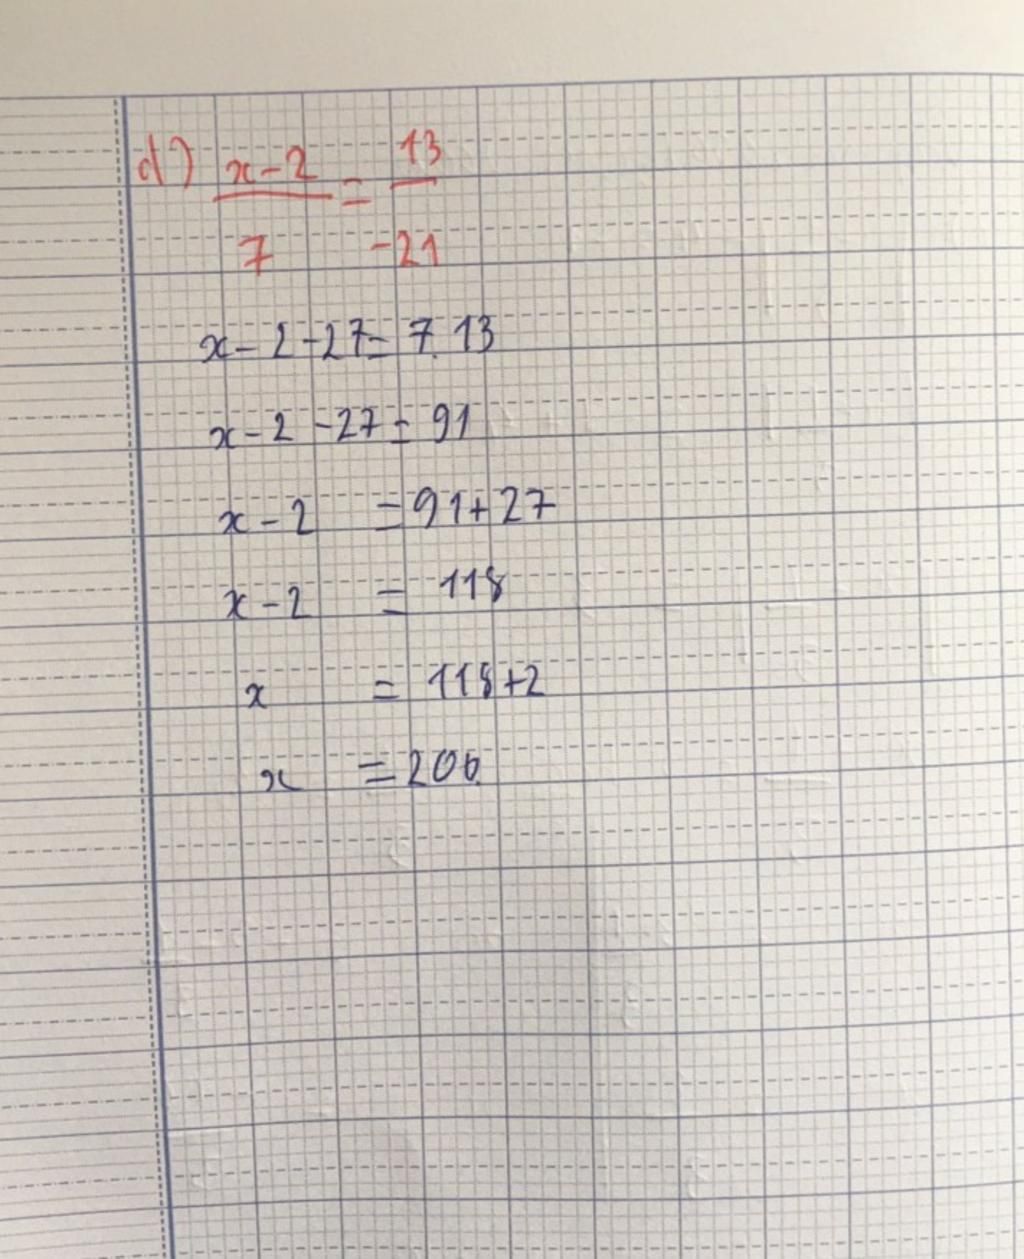 d) x-2/7 = 13/-21
x-2-27=7.13
x-2-27=91
x-2 =91+27
x-2 = 118
x = 118+2
x =206